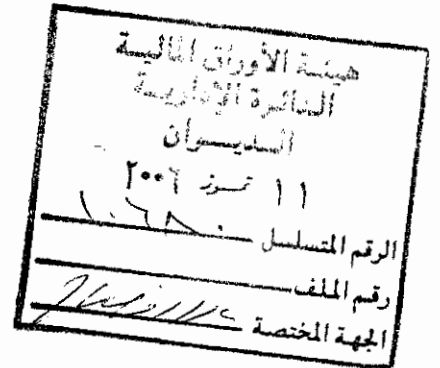 هيئة الأوراق المالية
الدائرة الإدارية
الديوان
١١ تموز ٢٠٠٦
الرقم المتسلسل
رقم الملف
الجهة المختصة